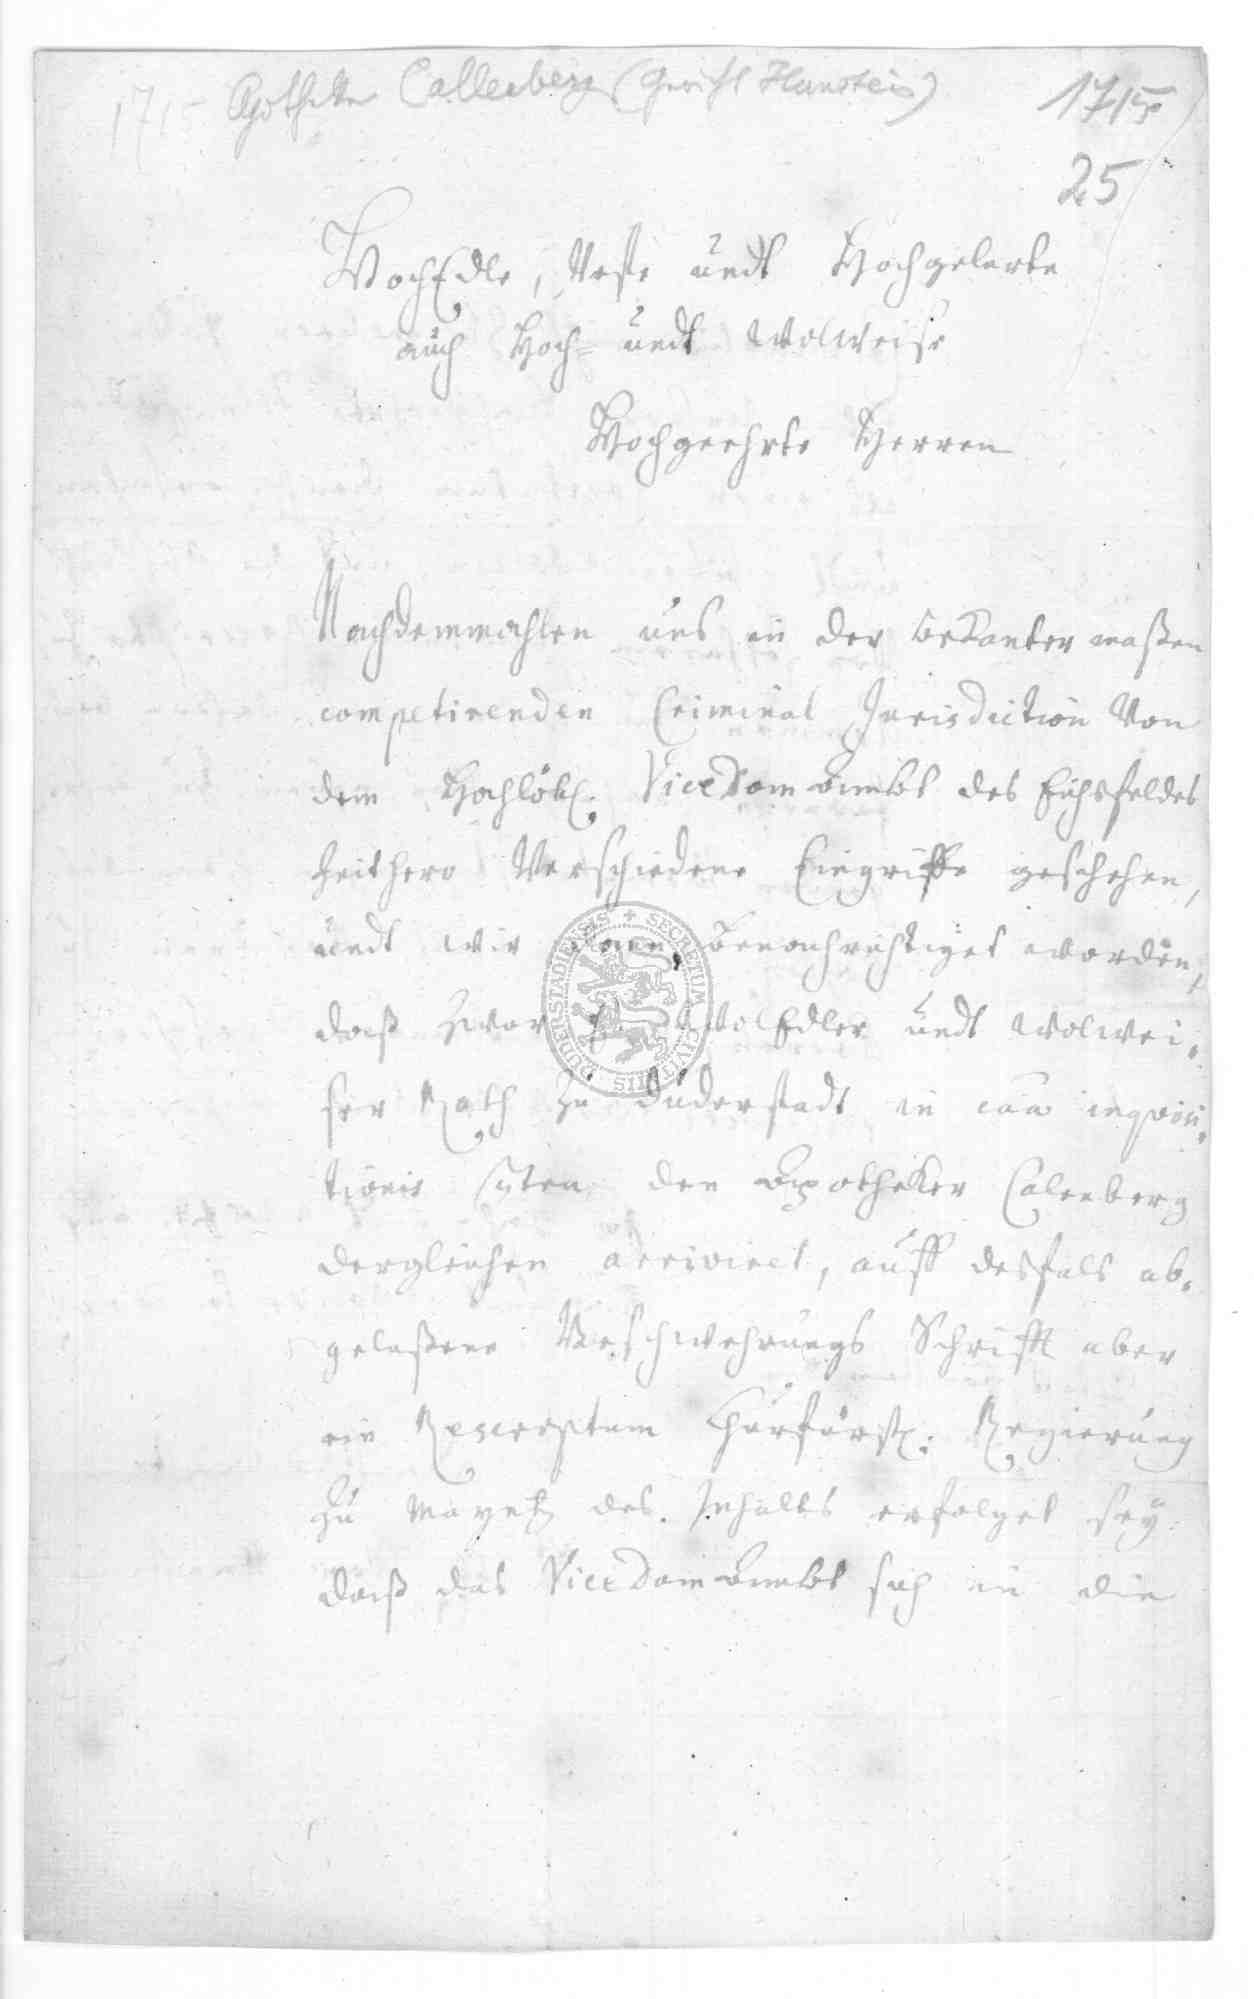 1715 Apotheke Callenberg (Gericht Hanstein) 1715
25
HochEdle, Veste undt Hochgelarte
auch Hoch- undt Wolweise
Hochgeehrte Herren
Nachdemmahlen uns in der bekanter maßen
competirenden Criminal Jurisdiction Von
dem Hochlöbl. ViceDom Ambt des Eichsfeldes
zeithero Verschiedene Eingriffe geschehen,
undt wir dann benachrichtiget worden,
daß zwar WolEdler undt Wolwei-
ser Rath zu Duderstadt in caa inquisi-
tionis den Apotheker Calenberg
dergleichen arriviret, auff desfals ab-
gelaßene Beschwehrungs Schrifft aber
ein Rescriptum Churfürstl: Regierung
zu Mayntz des Inhalts erfolget sey
daß das ViceDom Ambt sich in die
DUDERSTADIENSIS + SECRETUM CIVITATIS